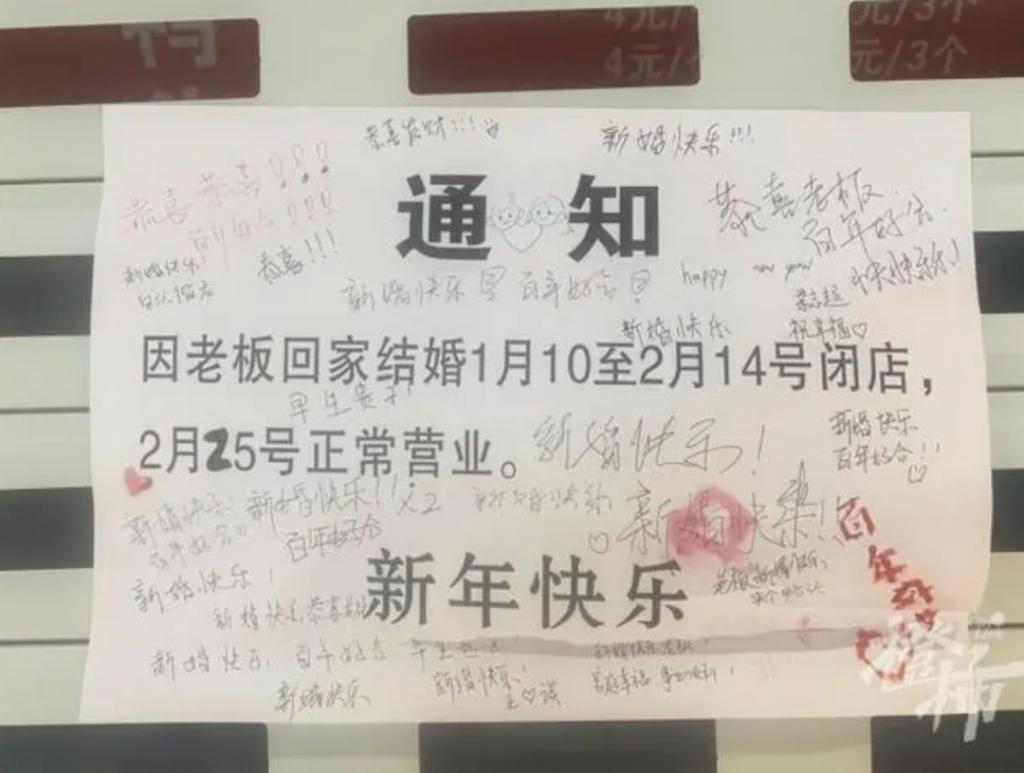 4元/
4元/个
元/3个
元/3个
恭喜发财!!!
新婚快乐!!!
恭喜恭喜!!!
百年好合!!!
新婚快乐!
恭喜!!!
通知
恭喜老板
百年好合
快快乐乐!
新婚快乐
百年好合
happy new year
新婚快乐
祝幸福♡
因老板回家结婚1月10至2月14号闭店，
早生贵子!
2月25号正常营业。
新婚快乐!
新婚快乐
百年好合!!
新婚快乐!
百年好合
新婚快乐!!x2
百年好合
新婚快乐!!
百年好合
新婚快乐!
新年快乐
新婚快乐 恭喜
新婚快乐 百年好合
新婚快乐
新婚快乐!
橙柿